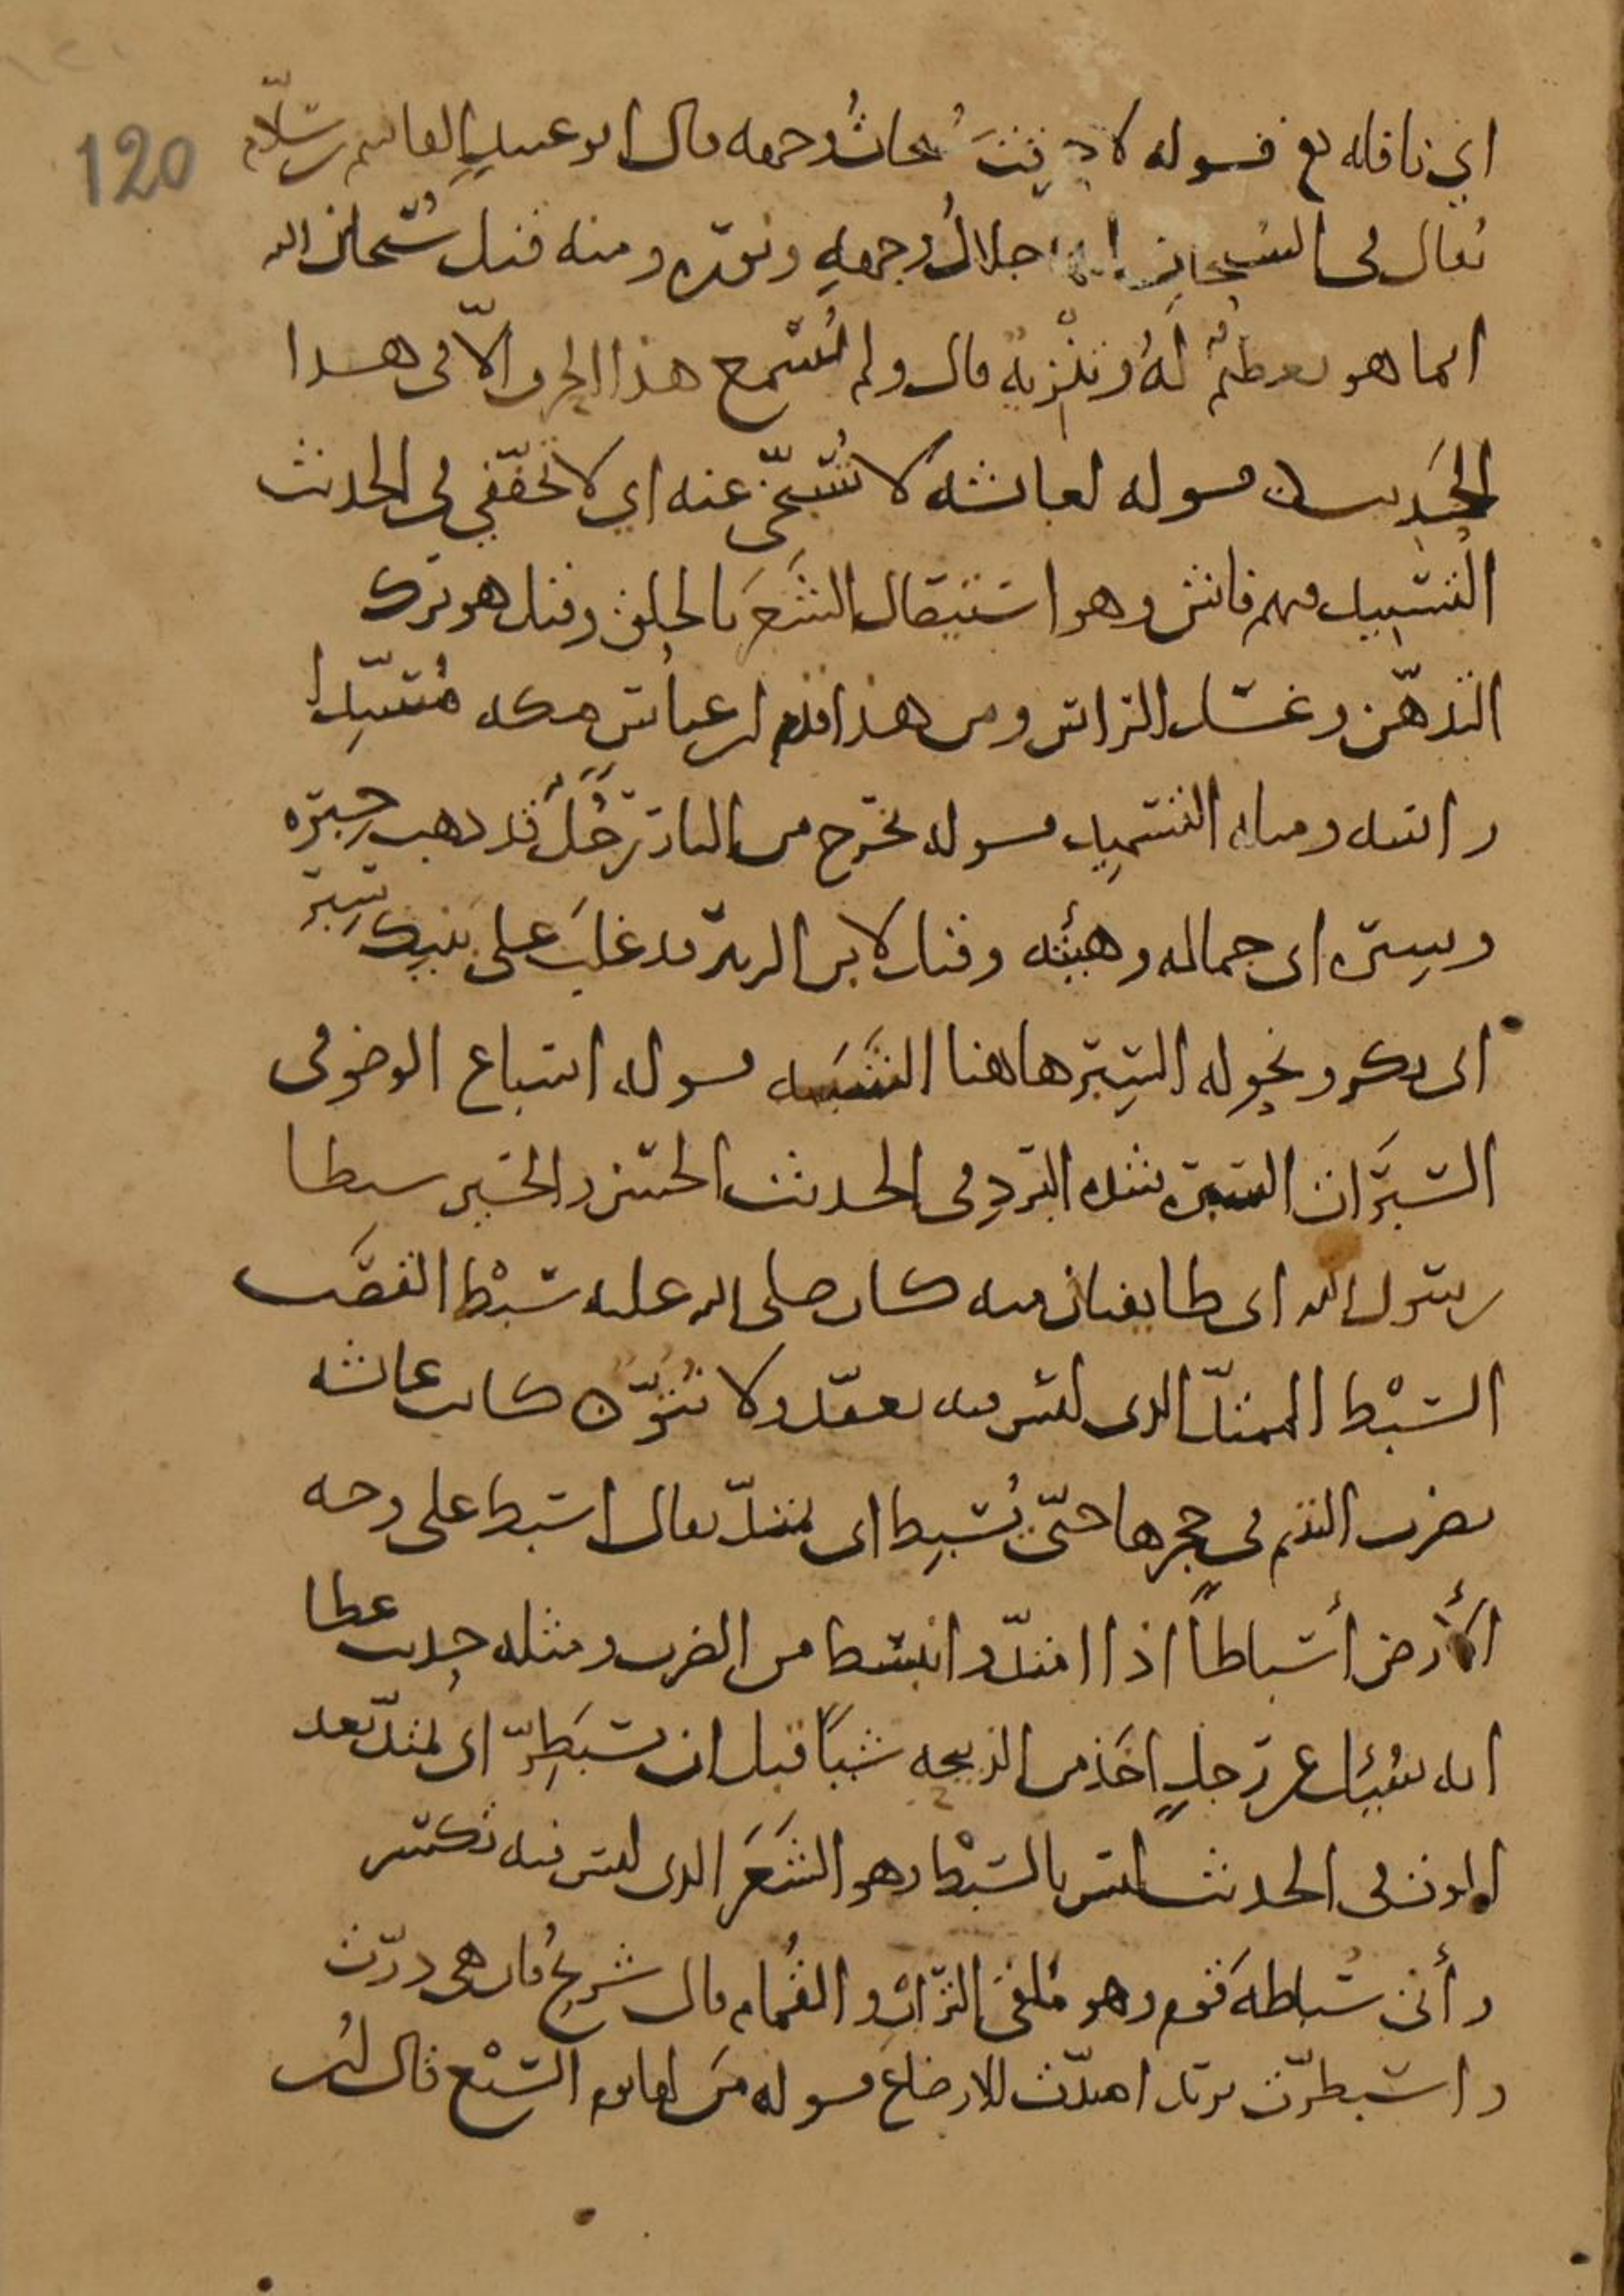 120
اي نافله مع قوله لاحرقت سُبحاتُ وجهه قال ابو عبيدٍ القاسم بن سلّام
يقال في السُبحات انها جلالُ وجههِ ونوره ومنه قيل سُبحان الله
انما هو تعظيمٌ لَهُ وتنزيهٌ قال ولم نُسْمع هذا الحرف الّا في هذا
الحَديث قوله لعائشه لا تُسَبّخي عنه اي لا تخفّفي في الحديث
التسبيد فيهم فاش وهو استيصال الشَعَر بالحلق وقيل هو ترك
التدهّن وغسل الراس ومن هذا قدم ابن عباس مكه مُسَبِّدا
راسه ومثله التسميد قوله يخرج من النار رَجُلٌ قد ذهب حِبره
وسِبره اى جماله وهيئته وقيل لابن الزبير قد غلبَ على بنيك سِبر
ابى بكر ونحوله السِبر هاهنا الشَبَه قوله اسباغ الوضو فى
السَبَرات السبره شده البردِ فى الحديث الحسن والحسين سبطا
رسول الله اى طايفتان منه كان صلى الله عليه سَبْط القصَب
السَبْط الممتدّ الذى ليس فيه تعقّد ولا نُتُوّ ٥ كانت عائشه
تضرب اليتيم في حجرها حتّى يُسبِط اى يمتدّ يقال اسبط على وجه
الأرض أسباطاً اذا امتدّ وانبسط من الضرب ومثله حديث عطا
انه سُئِل عن رجلٍ اخَذ من الذبيحه شيئًا قبل ان تسبَطِرّ اى تمتدّ بعد
الموت فى الحديث ليس بالسَبْط وهو الشَعَر الذى ليس فيه تكسّر
وأتى سُباطهَ قوم وهو مُلقَى التُرَاب والقُمام قال شريحٌ فان هى درّت
واسبطرّت يريد امتدّت للارضاع قوله مَن لها يوم السَبْع قال ابن